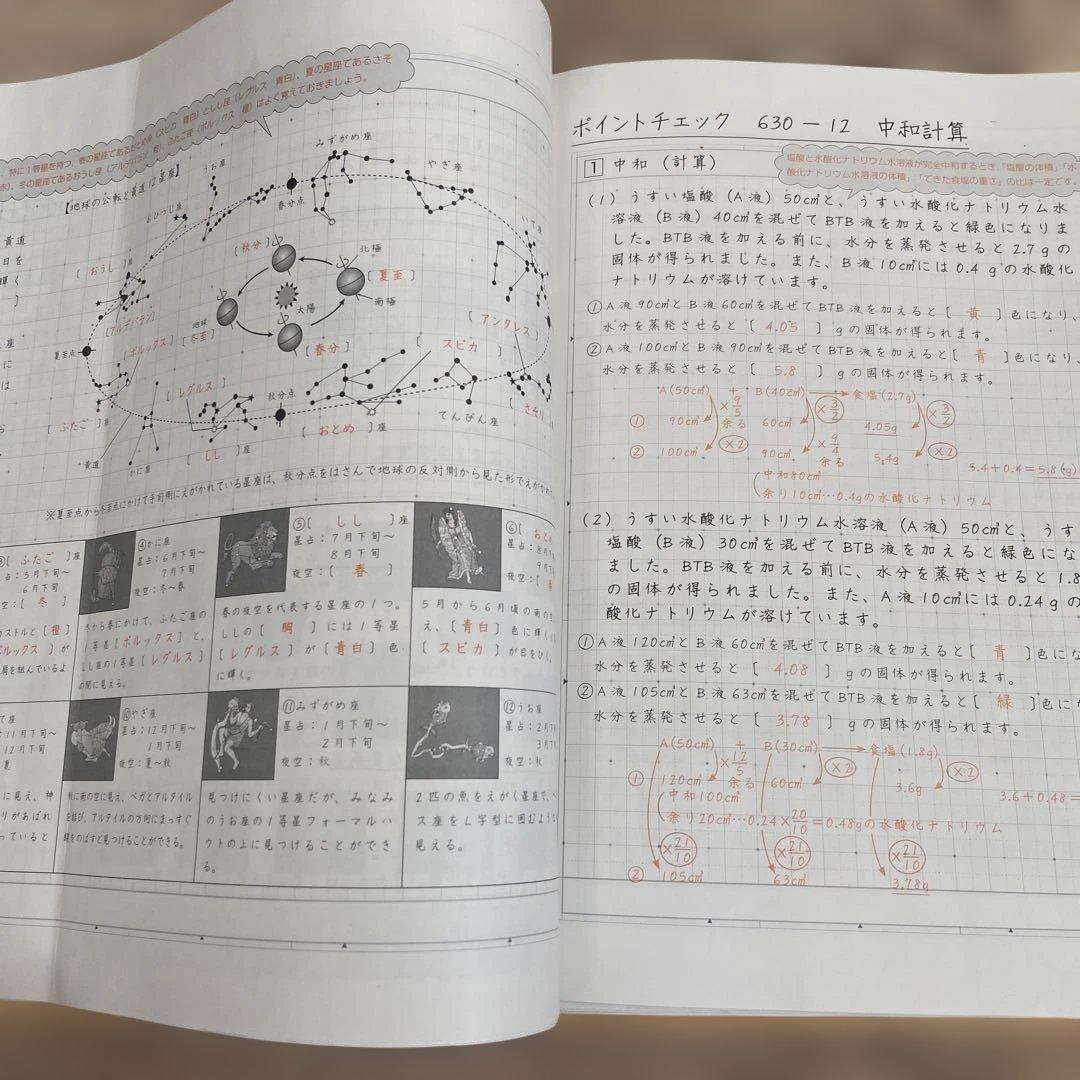 、特に１等星を持つ、春の星座であるおとめ座（スピカ　青白）としし座（レグルス　青白）、夏の星座であるさそ
赤）、冬の星座であるおうし座（アルデバラン　橙）、ふたご座（ポルックス　橙）はよく覚えておきましょう。
【地球の公転と黄道12星座】
黄道
日を
輝く
］
座
に
は
みずがめ座
うお座
やぎ座
おひつじ座
春分点
いて座
［秋分］
北極
［おうし］座
［夏至］
太陽
南極
地球
［アルデバラン］
［アンタレス］
［冬至］
夏至点
［ポルックス］
［春分］
［スピカ］
［レグルス］
秋分点
［さそり
てんびん座
［ふたご］座
［おとめ］座
［しし］座
黄道
かに座
※夏至点から冬至点にかけて手前側にえがかれている星座は、秋分点をはさんで地球の反対側から見た形でえがかれて
③［ふたご］座
占：５月下旬〜
６月下旬
空：［冬］
カストルと［橙］
ポルックス］が
肩を組んでいるよ
④かに座
星占：６月下旬〜
７月下旬
夜空：冬〜春
冬から春にかけて、ふたご座の
１等星［ポルックス］と、
しし座の１等星［レグルス］
の間に見える。
⑤［しし］座
星占：７月下旬〜
８月下旬
夜空：［春］
春の夜空を代表する星座の１つ。
ししの［胸］には１等星
［レグルス］が［青白］色
に輝く。
⑥［おとめ
星占：８月下
９月下
夜空：［春
５月から６月頃の南の空
え、［青白］色に輝く１
［スピカ］が目をひく。
て座
：11月下旬〜
12月下旬
夏
に見え、神
りがあばれ
っていると
⑩やぎ座
星占：12月下旬〜
１月下旬
夜空：夏〜秋
秋に南の空に見え、ベガとアルタイル
を結び、アルタイルの方向にまっすぐ
線をのばすと見つけることができる。
⑪みずがめ座
星占：１月下旬〜
２月下旬
夜空：秋
見つけにくい星座だが、みなみ
のうお座の１等星フォーマルハ
ウトの上に見つけることができ
る。
⑫うお座
星占：２月下
３月下
夜空：秋
２匹の魚をえがく星座で、ペ
ス座をＬ字型に囲むような
見える。
ポイントチェック　630－12　中和計算
1 中和（計算）
塩酸と水酸化ナトリウム水溶液が完全中和するとき、「塩酸の体積」「水
酸化ナトリウム水溶液の体積」「できた食塩の重さ」の比は一定です。
（1）うすい塩酸（A液）50cm³と、うすい水酸化ナトリウム水
溶液（B液）40cm³を混ぜてBTB液を加えると緑色になりま
した。BTB液を加える前に、水分を蒸発させると2.7gの
固体が得られました。また、B液10cm³には0.4gの水酸化
ナトリウムが溶けています。
①A液90cm³とB液60cm³を混ぜてBTB液を加えると［黄］色になり、
水分を蒸発させると［4.05］gの固体が得られます。
②A液100cm³とB液90cm³を混ぜてBTB液を加えると［青］色になり、
水分を蒸発させると［5.8］gの固体が得られます。
A(50cm³) ＋ B(40cm³) → 食塩(2.7g)
×9/5 ×3/2 ×3/2
① 90cm³ 余る 60cm³ 4.05g
×2 ×9/4 ×2
② 100cm³ 90cm³ 余る 5.4g 3.4+0.4=5.8(g)
中和80cm³
余り10cm³…0.4gの水酸化ナトリウム
（2）うすい水酸化ナトリウム水溶液（A液）50cm³と、うす
塩酸（B液）30cm³を混ぜてBTB液を加えると緑色にな
ました。BTB液を加える前に、水分を蒸発させると1.8
の固体が得られました。また、A液10cm³には0.24gの
酸化ナトリウムが溶けています。
①A液120cm³とB液60cm³を混ぜてBTB液を加えると［青］色にな
水分を蒸発させると［4.08］gの固体が得られます。
②A液105cm³とB液63cm³を混ぜてBTB液を加えると［緑］色にな
水分を蒸発させると［3.78］gの固体が得られます。
A(50cm³) ＋ B(30cm³) → 食塩(1.8g)
×12/5 ×2 ×2
① 120cm³ 余る 60cm³ 3.6g 3.6+0.48=
中和100cm³
余り20cm³…0.24×20/10=0.48gの水酸化ナトリウム
×21/10 ×21/10 ×21/10
② 105cm³ 63cm³ 3.78g